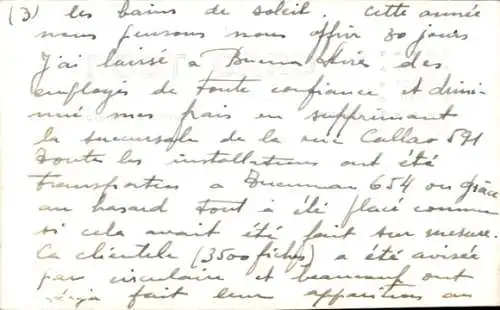 (3) les bains de soleil. Cette année
nous pensons nous offrir 30 jours
J'ai laissé a Buenos Aires des
employés de toute confiance et dimi-
nué mes frais en supprimant
la succursale de la rue Callao 571
Toutes les installations ont été
transportées a Tucuman 654 ou grâce
au hasard tout a été placé comme
si cela avait été fait sur mesure.
La clientele (3500 fiches) a été avisée
par circulaire et beaucoup ont
déjà fait leur apparition au